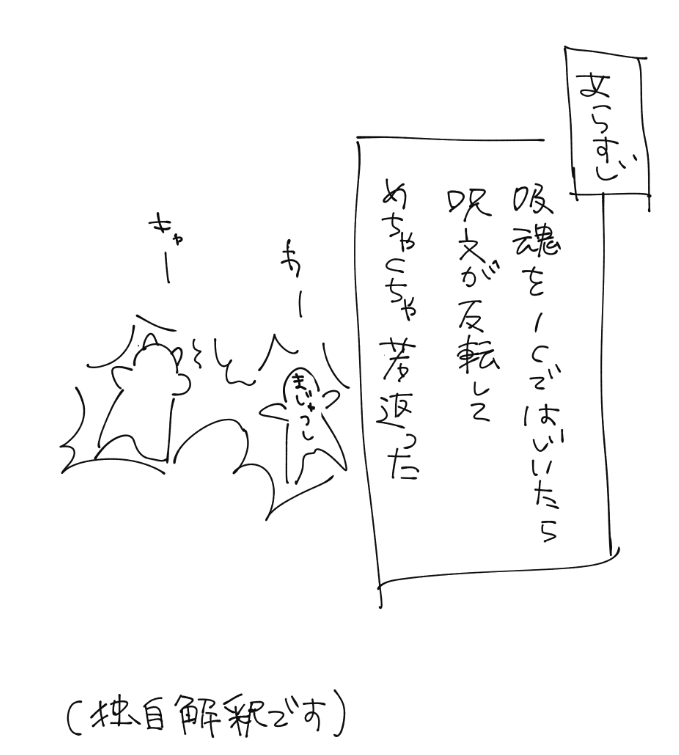 あらすじ
吸魂を1cではじいたら
呪文が反転して
めちゃくちゃ若返った
わー
まじゅつし
キャー
(独自解釈です)